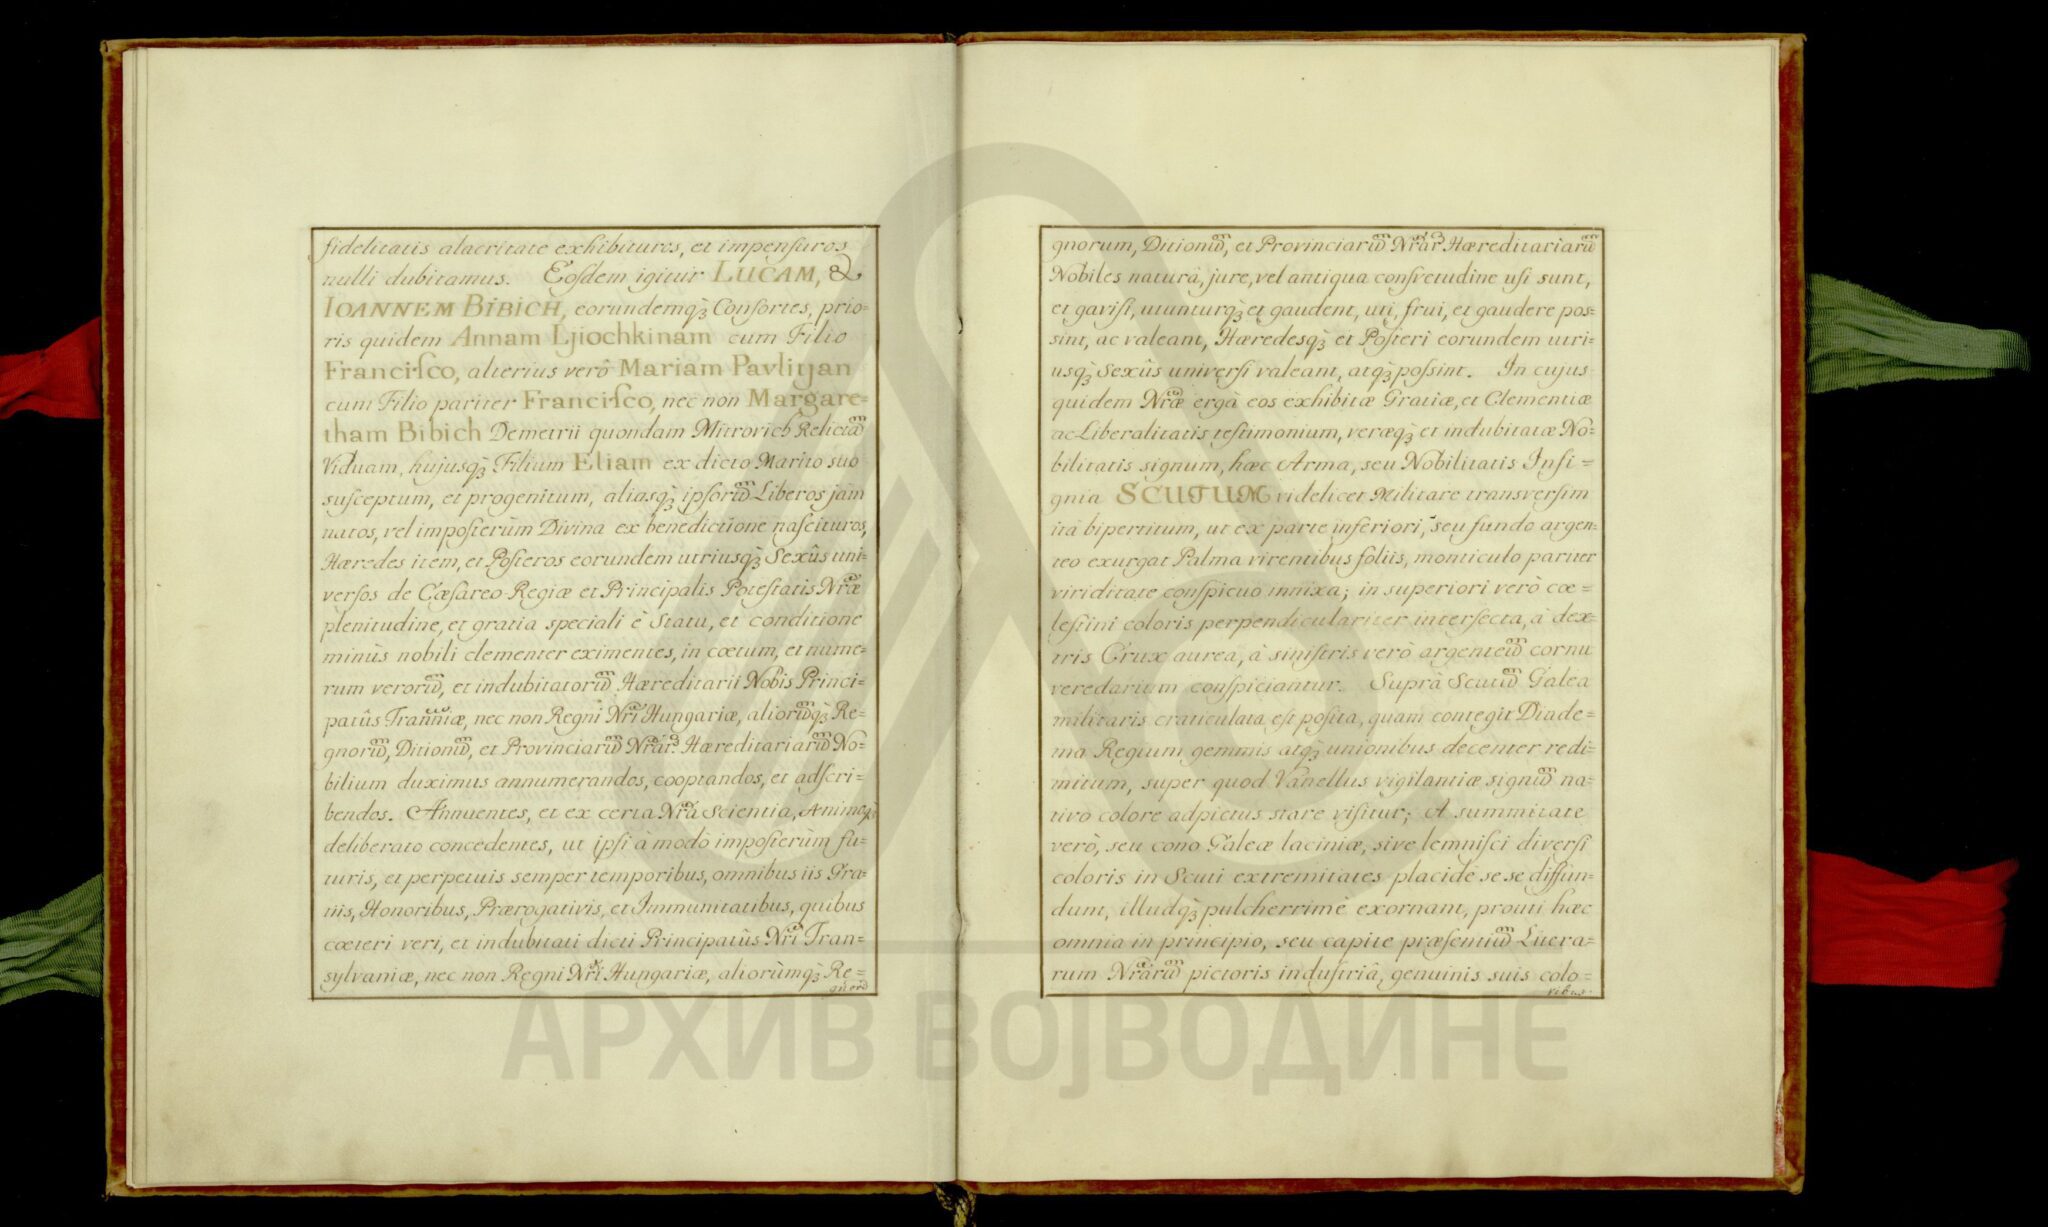 fidelitatis alacritate exhibituros, et impensuros
nulli dubitamus. Eosdem igitur LUCAM, &
IOANNEM BIBICH, eorundemq̀ꝫ Consortes, prio-
ris quidem Annam Ljiochkinam cum Filio
Francisco, alterius verò Mariam Pavlitjan
cum Filio pariter Francisco, nec non Margare=
tham Bibich Demetrii quondam Mitrovich Relictam̃
Viduam, hujusq̀ꝫ Filium Eliam ex dicto Marito suo
susceptum, et progenitum, aliasq̀ꝫ ipsorum̃ Liberos jam
natos, vel imposterùm Divina ex benedictione nascituros,
Hæredes item, et Posteros eorundem utriusq̀ꝫ Sexûs uni=
versos de Cæsareo-Regiæ et Principalis Potestatis Nræ̃
plenitudine, et gratia speciali è Statu, et conditione
minùs nobili clementer eximentes, in cœtum, et nume-
rum verorum̃, et indubitatorum̃ Hæreditarii Nobis Princi-
patûs Tranniæ̃, nec non Regni Nri̇̃ Hungariæ, aliorum̃q̀ꝫ Re-
gnorum̃, Ditionum̃, et Provinciarum̃ Nrãr Hæreditariarum̃ No-
bilium duximus annumerandos, cooptandos, et adscri-
bendos. Annuentes, et ex certa Nrã Scientia, Animoq̀ꝫ
deliberato concedentes, ut ipsi à modò imposterùm fu-
turis, et perpetuis semper temporibus, omnibus iis Gra-
tiis, Honoribus, Prærogativis, et Immunitatibus, quibus
cœteri veri, et indubitati dicti Principatûs Nrĩ Tran=
sylvaniæ, nec non Regni Nrĩ Hungariæ, aliorùmq̀ꝫ Re=
gnorũ
gnorum, Ditionum̃, et Provinciarum̃ Nrãr Hæreditariarum̃
Nobiles naturâ, jure, vel antiqua consvetudine usi sunt,
et gavisi, utunturq̀ꝫ et gaudent, uti, frui, et gaudere pos=
sint, ac valeant, Hæredesq̀ꝫ et Posteri eorundem utri-
usq̀ꝫ Sexûs universi valeant, atq̀ꝫ possint. In cujus
quidem Nræ̃ ergà eos exhibitæ Gratiæ, et Clementiæ
ac Liberalitatis testimonium, veræq̀ꝫ et indubitatæ No-
bilitatis signum, hæc Arma, seu Nobilitatis Insi=
gnia SCUTUM videlicet Militare transversim
ità bipertitum, ut ex parte inferiori, seu fundo argen=
teo exurgat Palma virentibus foliis, monticulo pariter
viriditate conspicuo innixa; in superiori verò cœ=
lestini coloris perpendiculariter intersecta, à dex-
tris Crux aurea, à sinistris verò argenteum̃ cornu
veredarium conspiciantur. Suprà Scutum̃ Galea
militaris craticulata est posita, quam contegit Diade-
ma Regium gemmis atq̀ꝫ unionibus decenter redi=
mitum, super quod Vanellus vigilantiæ signum̃ na-
tivo colore adpictus stare visitur; A summitate
verò, seu cono Galeæ laciniæ, sive lemnisci diversi
coloris in Scuti extremitates placidè se se diffun-
dunt, illudq̀ꝫ pulcherrimè exornant, prouti hæc
omnia in principio, seu capite præsentium̃ Littera-
rum Nrãrum̃ pictoris industriâ, genuinis suis colo=
ribus
АРХИВ ВОЈВОДИНЕ